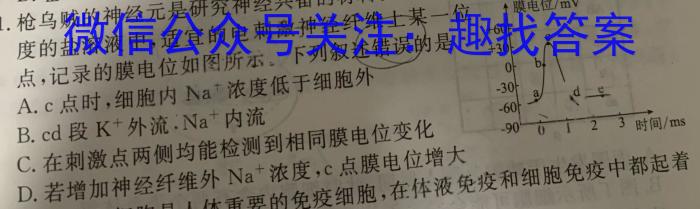 1.枪乌贼的神经元是研究神经兴奋的
微信公众号关注：趣找答案
度的 某一位
点,记录的膜电位如图所示。下列叙述错误的是
A. c点时,细胞内 Na⁺ 浓度低于细胞外
B. cd 段 K⁺ 外流,Na⁺ 内流
C. 在刺激点两侧均能检测到相同膜电位变化
D. 若增加神经纤维外 Na⁺ 浓度,c点膜电位增大
是人体重要的免疫细胞,在体液免疫和细胞免疫中都起着
膜电位/mV
0
-30
-60
-90
a b d e
0 1 2 3 时间/ms